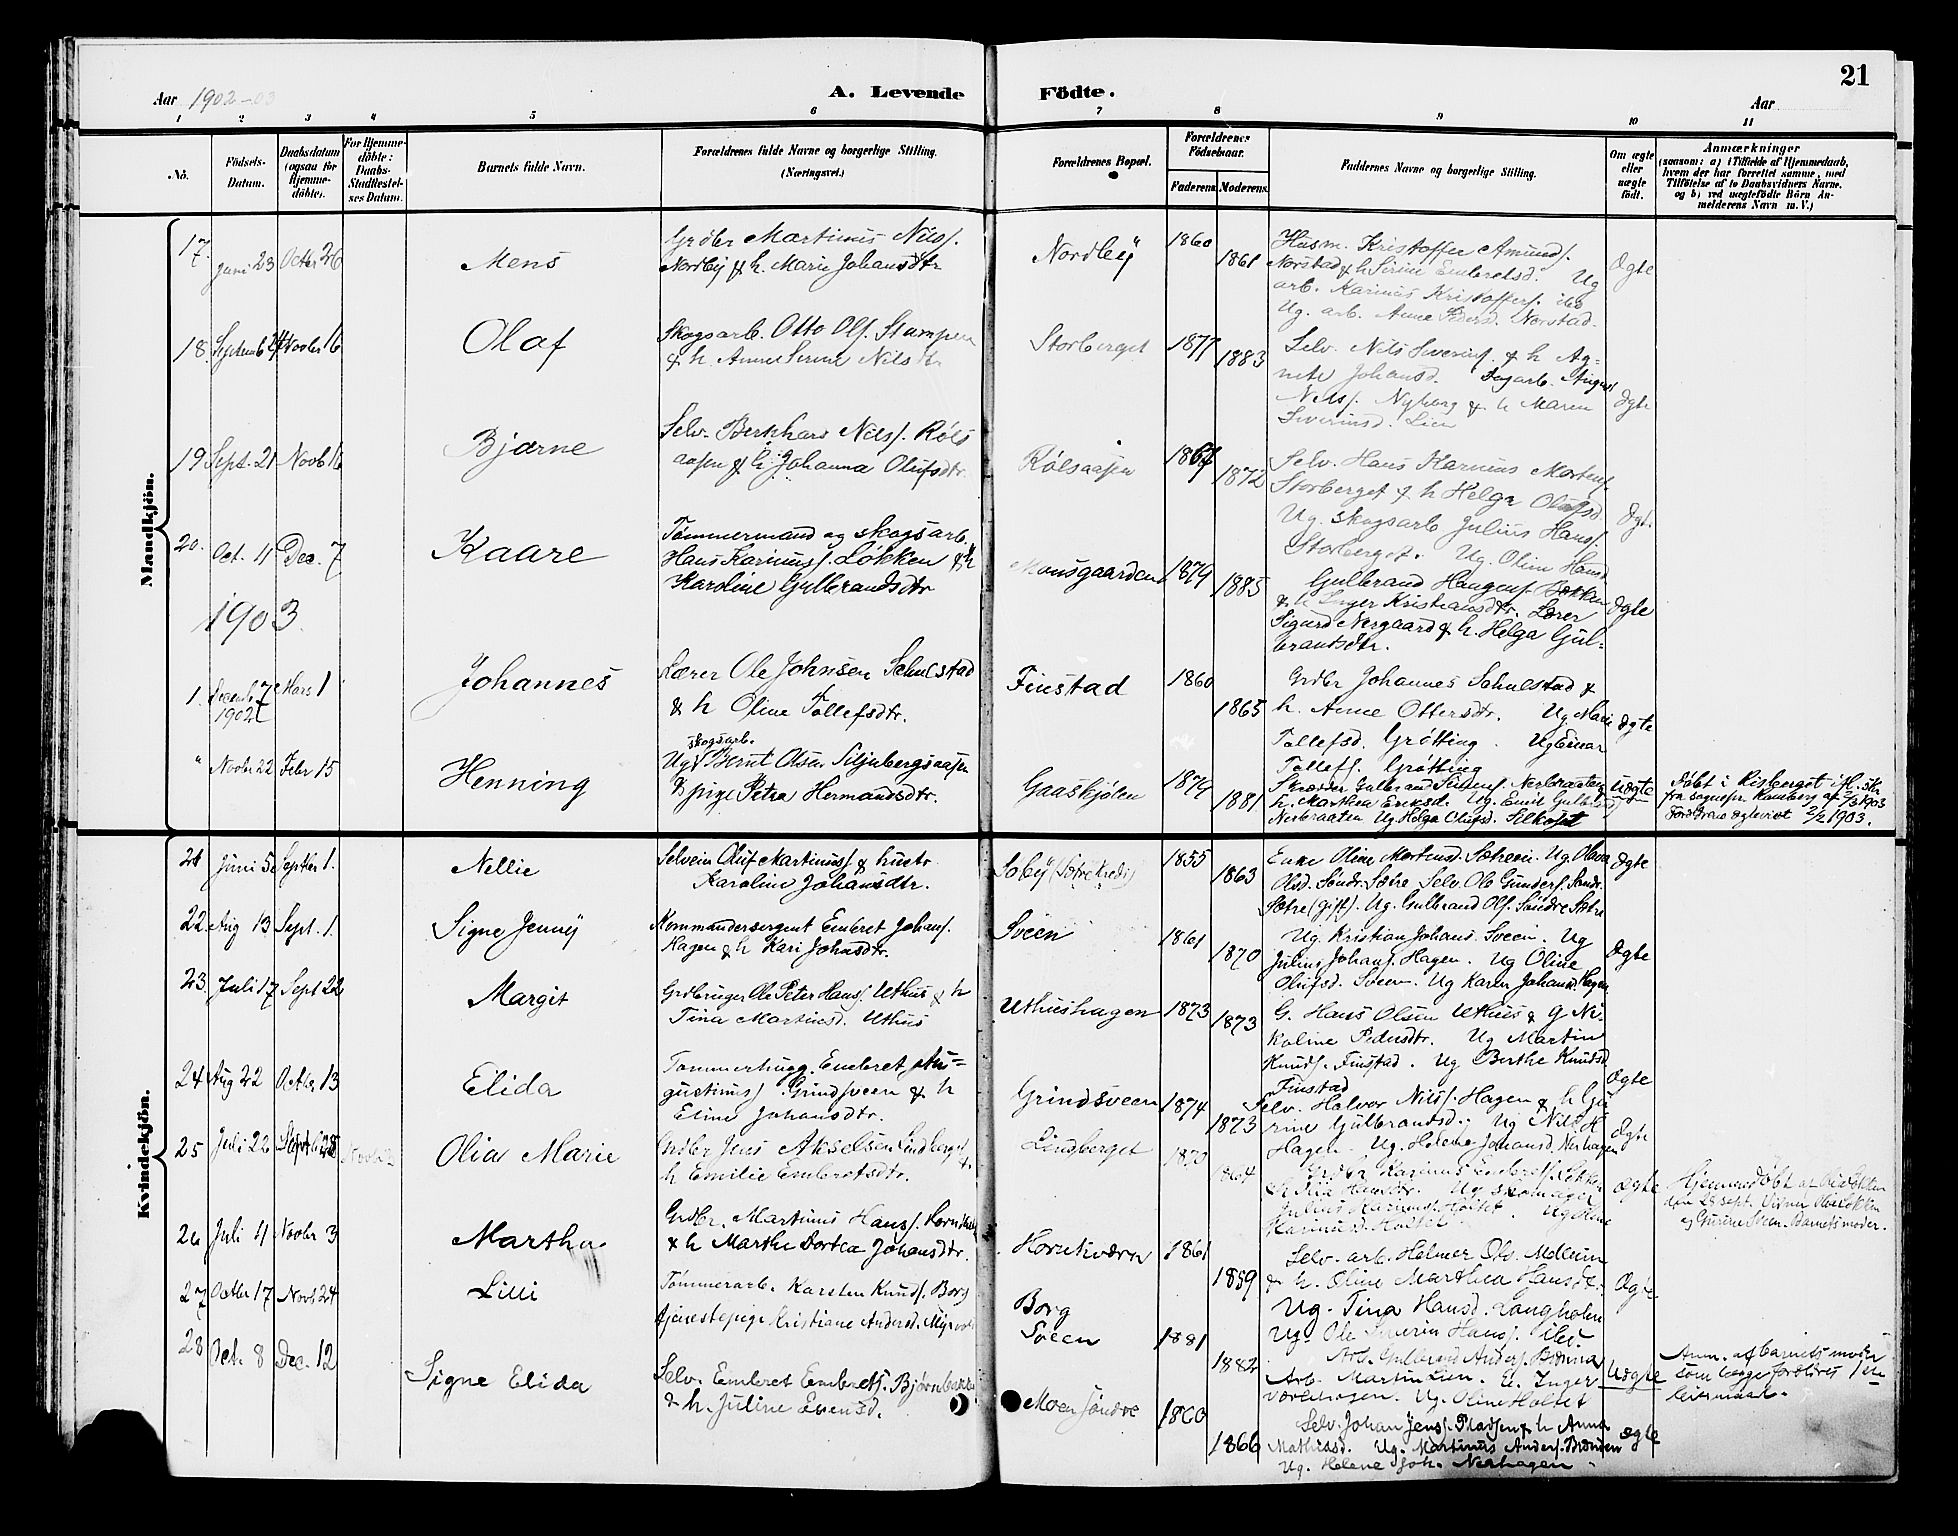 Aar 1902-03
A. Levende Födte.
21
Aar
1 2 3 4 5 6 7 8 9 10 11
No.
Födsels-Datum.
Daabsdatum (ogsaa for Hjemme-döbte).
For Hjemme-döbte: Daabs-Stadfæstel-ses Datum.
Barnets fulde Navn.
Forældrenes fulde Navne og borgerlige Stilling.
(Næringsvei.)
Forældrenes Bopæl.
Forældrenes Födselsaar.
Faderens. Moderens.
Faddernes Navne og borgerlige Stilling.
Om ægte eller uægte födt.
Anmærkninger
(saasom: a) i Tilfælde af Hjemmedaab,
hvem der har forrettet samme, med
Tilföielse af to Daabsvidners Navne,
og b) ved uægtefödte Börn An-
melderens Navn m. V.)
Mandkjön.
17. Juni 23 Octbr 26 Mens
Grdbr Martinus Nilsf.
Nordby & h. Marie Johansdtr
Nordby 1860 1861
Husm. Kristoffer Amundf.
Norstad & h Sirine Embretsd. Ug
arb. Karinus Kristoffersf. ibd
Ug. arb. Anne Pedersd. Norstad.
Ægte
18. Septemb 24 Novbr 16 Olaf
Skogsarb. Otto Olsf. Stumpen
& h. Anne Serine Nilsdtr.
Storberget 1877 1883
Selv. Nils Severinsf. & h Ag-
nete Johansd. Dagarb. August
Nilsf. Nyborg & h Maren
Severinsd. Lien
Ægte
19 Sept. 21 Novb 16 Bjarne
Selv. Bernhard Nilsf. Röls
aasen & h. Johanna Olufsdtr.
Rölsaasen 1867 1872
Selv. Hans Karinus Mortensf.
Storberget & h Helga Olufsd.
Ug. Skogsarb Julius Hansf.
Storberget. Ug Oline Hansd
Ægt.
20. Oct. 11 Dec. 7 Kaare
Tömmermand og skogsarb.
Hans Karinusf. Lökken & h
Karoline Gulbrandsdtr
Monsgaarden 1879 1885
Gulbrand Haagensf. Bakken
& h Inger Kristiansdtr. Lærer
Sigurd Nergaard & h. Helga Gul-
brandsdtr.
Ægte
1903.
1. Decemb 7 1902 Mars 1 Johannes
Lærer Ole Johnsen Sætnestad
& h Oline Tollefsdtr.
Finstad 1860 1865
Grdbr Johannes Sætnestad &
h. Anne Ottersdtr. Ug Marie
Tollefsd. Grötting. Ug Einar
Tollefsf. Grötting
Ægte
" Novbr 22 Febr 15 Henning
skogsarb.
Ug Bernt Olsen Siljubergsaasen
& pige Petra Hermandsdtr.
Gaaskjölen 1879 1881
Skrædder Gulbrand Simensf. Nerbraaten
h. Marthea Eriksd. Ug. Emil Gulbrd
Nerbraaten Ug. Helga Olufsd. Silkoset
Uægte
Döbt i Risberget
fra sognepr. Ramberg af 2/3 1903
Forældrene ægteviet 2/2 1903.
Kvindekjön.
21 Juni 5 Septbr 1. Nellie
Selveier Oluf Martinusf. & hustr.
Karoline Johansdtr.
Söby 1855 1863
Enke Oline Mortensd. Sætreen. Ug. Olava
Olsd. Söndr. Sætre Selv. Ole Gundersf. Söndr.
Sætre (gift). Ug. Gulbrand Olsf. Söndre Sætre
Ægte
22. Aug 13 Sept. 1. Signe Jenny
Kommandersergent Embret Johansf.
Hagen & h Kari Johnsdtr.
Sveen 1861 1870
Ug. Kristian Johans. Sveen. Ug
Julius Johansf. Hagen. Ug Oline
Olufsd. Sveen. Ug Karen Johansd. Hagen
Ægte
23 Juli 17 Sept 22 Margit
Grdbruger Ole Peter Hansf. Uthus & h
Tina Martinsd. Uthus
Uthushagen 1873 1873
G. Hans Olsen Uthus & g Ni-
koline Pedersdtr. Ug Martin
Knudsf. Finstad. Ug Berthe Knudsd
Finstad
Ægte
24 Aug 22 Octbr 13 Elida
Tømmerhugg. Embret Au-
gustinusf. Grindsveen & h
Eline Johansdtr.
Grindsveen 1874 1873
Selv. Halvor Nilsf. Hagen & h Gu
rine Gulbrandsd. Ug Nils H
Hagen. Ug. Helene Johansd. Nerhagen
Ægte
25 Juli 22 Septb 28 Novbr Olia Marie
Grdbr Jens Akselsen Lindberget &
h Emilie Embretsdtr.
Lindberget 1870 1864
Grdbr Karinus Embretsf. Løkken
Ug skomager
Julius Karinusf. Holtet. Ug Oline
Karinusd. Holtet
Ægte
Hjemmedöbt af Olia Løkken
den 28 sept. Vidner Olia Løkken
og Gurine Sveen. Barnets moder.
26 Juli 4 Novbr 3 Martha
Grdbr. Martinus Hansf. Hornkværn
& h Marthe Dortea Johansdtr.
Hornkværn 1861 1859
Selv. arb. Helmer Ols. Mellum
& h. Oline Marthea Hansdt.
Ug. Tina Hansd. Langholen
Ug. Ole Severin Hansf. ibd
Ægte
27 Octbr 17 Novb 24 Lilli
Tömmerarb. Karsten Knudsf. Borg
tjenestepige Kristiane Andersd. Myrvold
Borg
Sveen 1881 1882
Arb. Gulbrand Andersf. Brænna
Arb. Martinsen. E. Inger
Ug. Oline Holtet
Uægte
Anm. af barnets moder
som begge forældres 1ste
leiermaal.
28 Oct. 8 Dec. 12 Signe Elida
Selv. Embret Embretsf. Bjørnbakke
& h. Juline Evensd.
Moen söndre 1860 1866
Selv. Johan Jensf. Pladsen & h Anna
Mathiasd. Ug. Martinus Andersf. Brænden
Ug. Helene Joh. Nerhagen.
Ægte